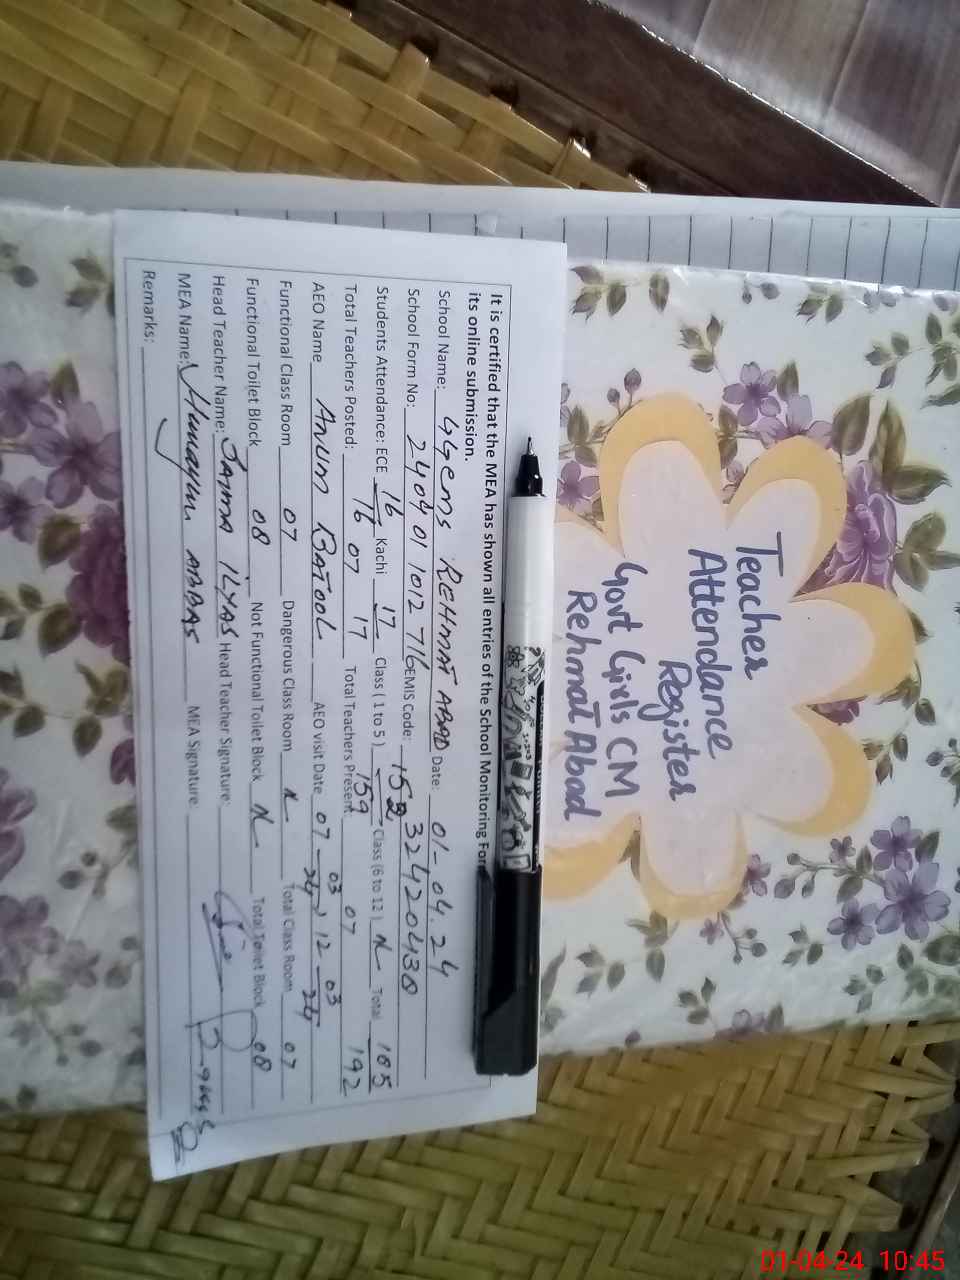 Teacher
Attendance
Register
Govt Girls CM
Rehmat Abad
It is certified that the MEA has shown all entries of the School Monitoring For
its online submission.
School Name: GGems REHMAT ABAD Date: 01-04.24
School Form No: 2404011012716 EMIS Code: 32420430
Students Attendance: ECE 16 16 Kachi 17 17 Class (1 to 5) 152 159 Class (6 to 12) N Total 185 192
Total Teachers Posted: 07 Total Teachers Present: 07
AEO Name Anum BATOOL AEO visit Date 07-03-24, 12-03-24
Functional Class Room 07 Dangerous Class Room N Total Class Room 07
Functional Toilet Block 08 Not Functional Toilet Block N Total Toilet Block 08
Head Teacher Name: SAIMA ILYAS Head Teacher Signature:
MEA Name: Humayun ABBAS MEA Signature:
Remarks:
01-04-24 10:45